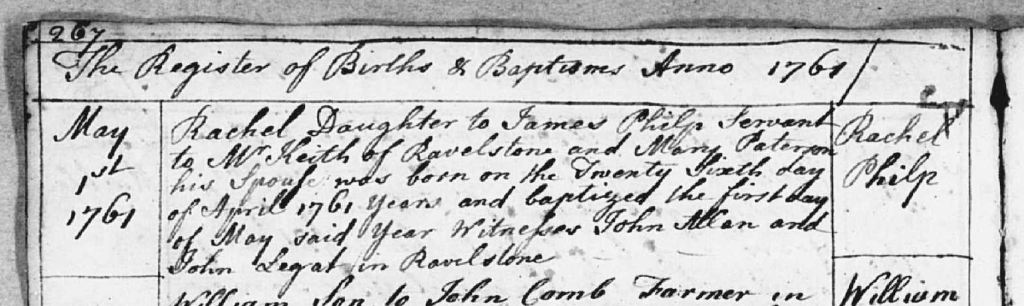 267
The Register of Births & Baptisms Anno 1761
May
1st
1761
Rachel Daughter to James Philp Servant
to Mr Keith of Ravelstone and Mary Paterson
his Spouse was born on the Twenty Sixth day
of April 1761 Years and baptized the first day
of May said Year Witnesses John Allan and
John Legat in Ravilstone
Rachel
Philp
William Son to John Comb Farmer in
William